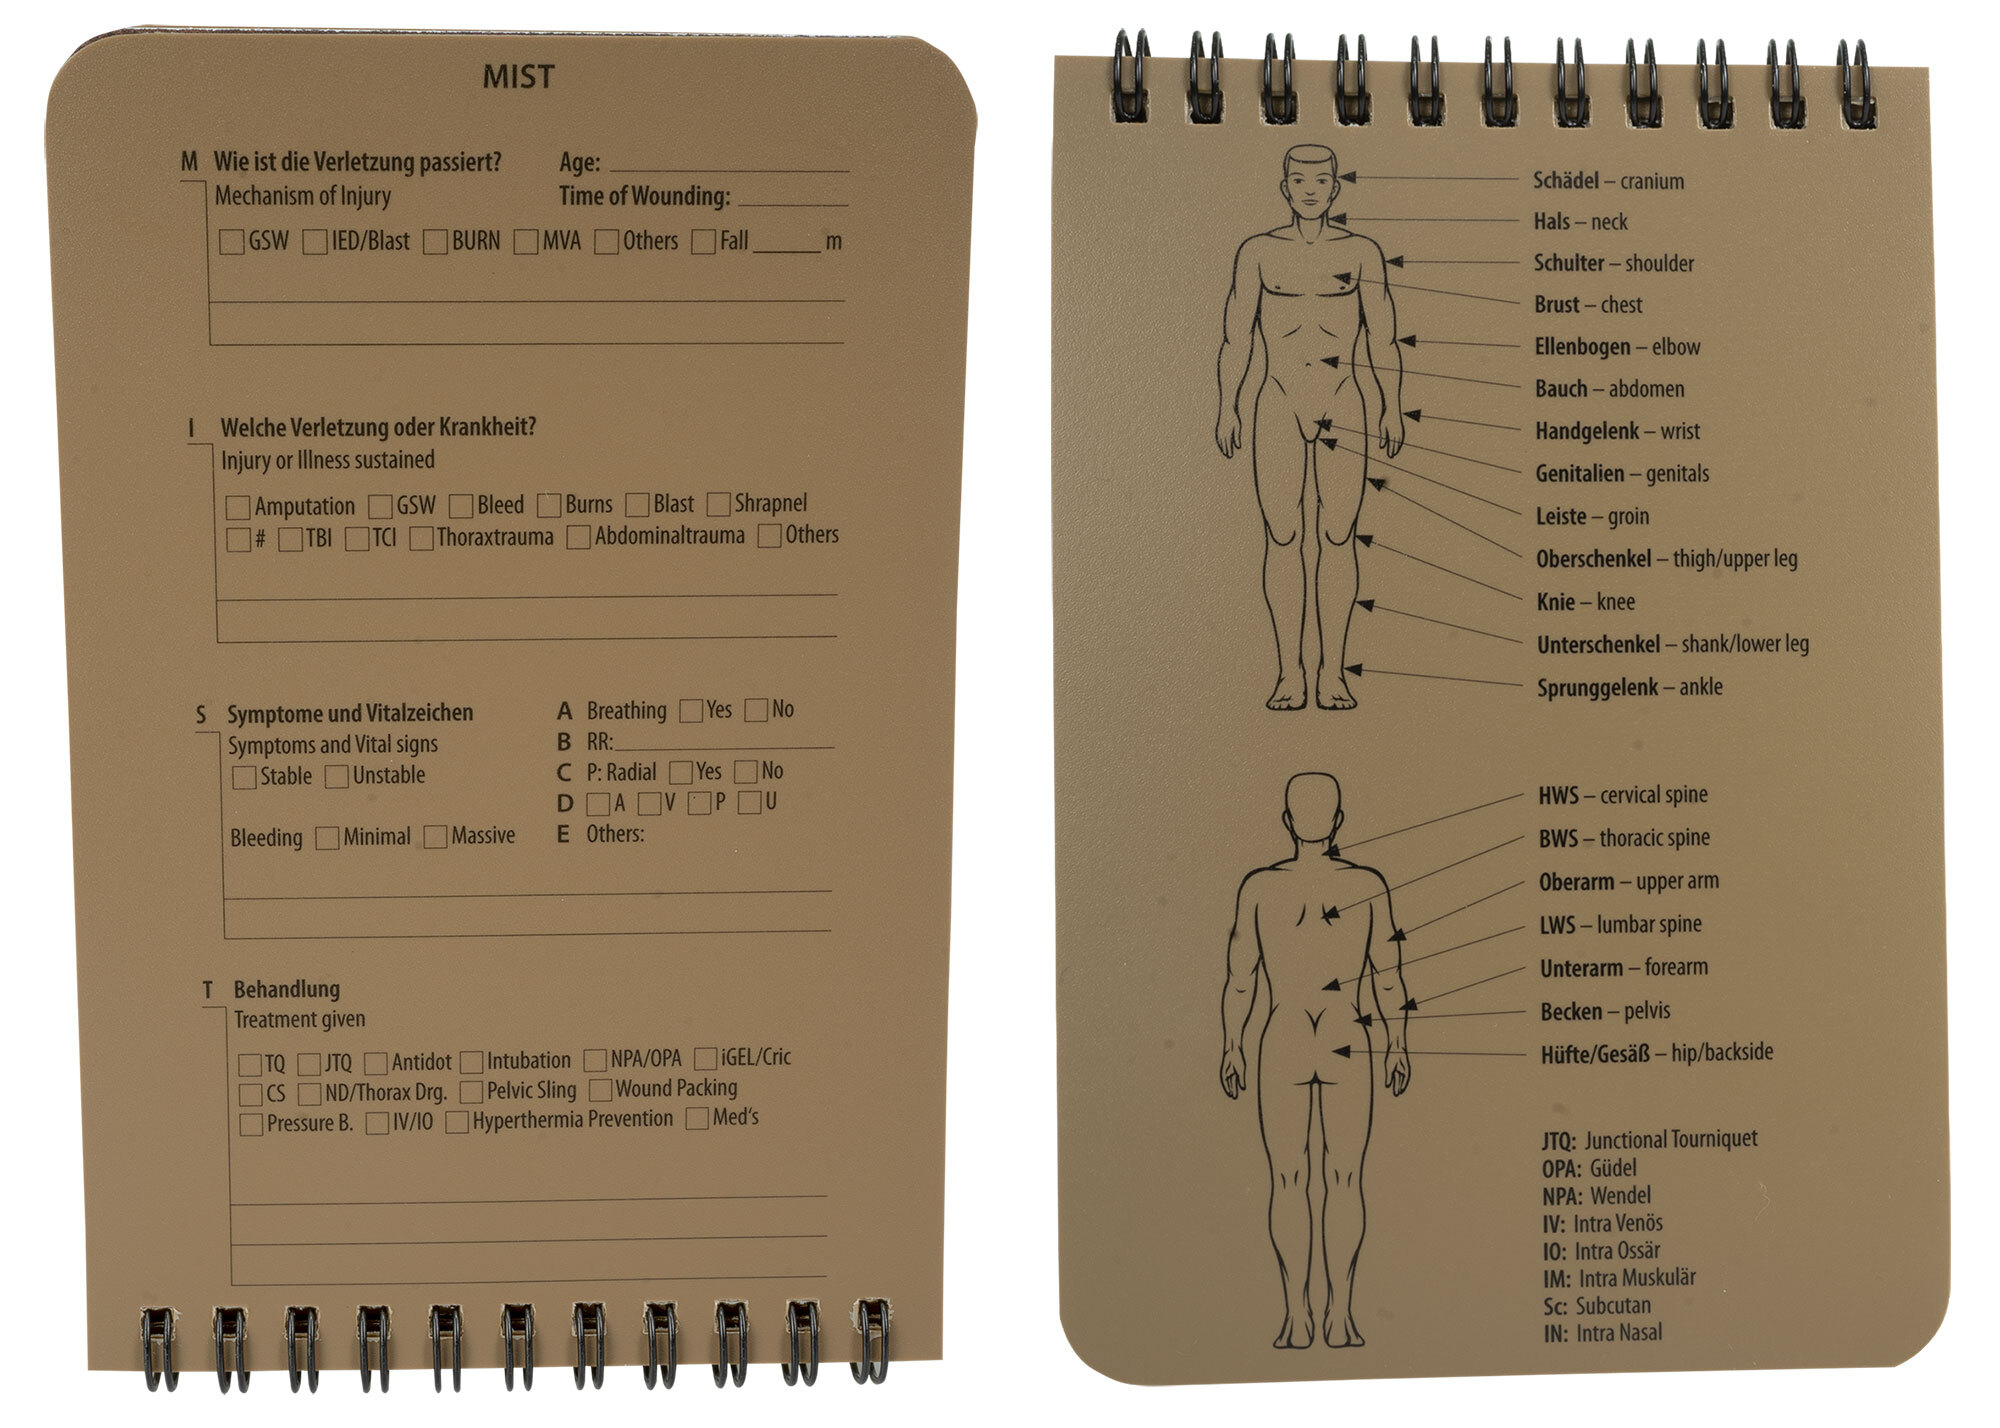 MIST
M Wie ist die Verletzung passiert? Age:
Mechanism of Injury Time of Wounding:
GSW IED/Blast BURN MVA Others Fall m
I Welche Verletzung oder Krankheit?
Injury or Illness sustained
Amputation GSW Bleed Burns Blast Shrapnel
# TBI TCI Thoraxtrauma Abdominaltrauma Others
S Symptome und Vitalzeichen
Symptoms and Vital signs
Stable Unstable
Bleeding Minimal Massive
A Breathing Yes No
B RR:
C P: Radial Yes No
D A V P U
E Others:
T Behandlung
Treatment given
TQ JTQ Antidot Intubation NPA/OPA iGEL/Cric
CS ND/Thorax Drg. Pelvic Sling Wound Packing
Pressure B. IV/IO Hyperthermia Prevention Med's
Schädel – cranium
Hals – neck
Schulter – shoulder
Brust – chest
Ellenbogen – elbow
Bauch – abdomen
Handgelenk – wrist
Genitalien – genitals
Leiste – groin
Oberschenkel – thigh/upper leg
Knie – knee
Unterschenkel – shank/lower leg
Sprunggelenk – ankle
HWS – cervical spine
BWS – thoracic spine
Oberarm – upper arm
LWS – lumbar spine
Unterarm – forearm
Becken – pelvis
Hüfte/Gesäß – hip/backside
JTQ: Junctional Tourniquet
OPA: Güdel
NPA: Wendel
IV: Intra Venös
IO: Intra Ossär
IM: Intra Muskulär
Sc: Subcutan
IN: Intra Nasal